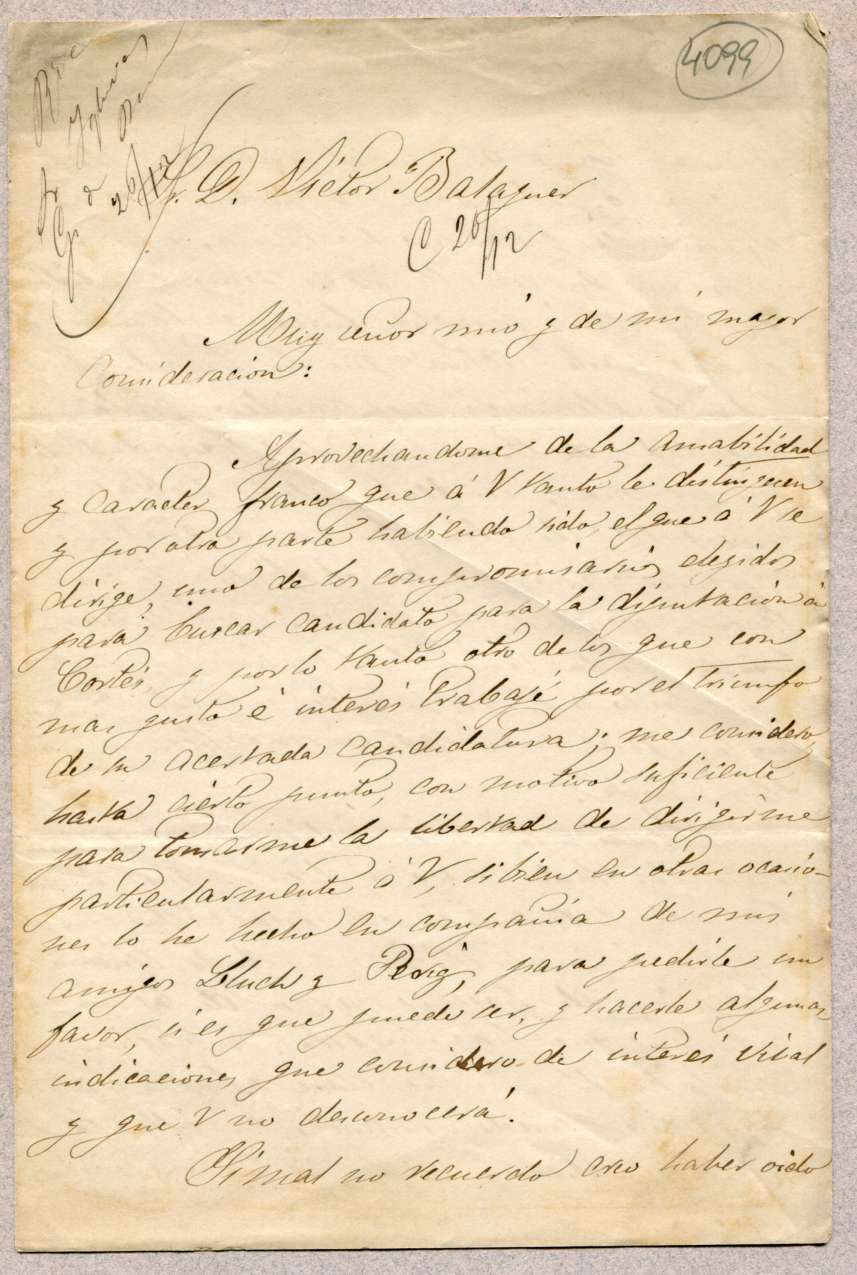 4099
26/12
S. D. Victor Balaguer
C 26/12
Muy señor mio y de mi mayor
Consideracion:
Aprovechandome de la amabilidad
y caracter franco que á V tanto le distinguen
y por otra parte habiendo sido, el que á V se
dirige, uno de los compromisarios elegidos
para buscar candidato para la diputacion á
Cortes, y por lo tanto otro de los que con
mas gusto é interés trabajé por el triunfo
de su acertada candidatura; me considero,
hasta cierto punto, con motivo suficiente
para tomarme la libertad de dirigirme
particularmente á V, si bien en otras ocasio-
nes lo he hecho en compañia de mis
amigos Lluch y Roig, para pedirle un
favor, si es que puede ser, y hacerle algunas
indicaciones que considero de interés vital
y que V no desconocerá.
Si mal no recuerdo creo haber oido